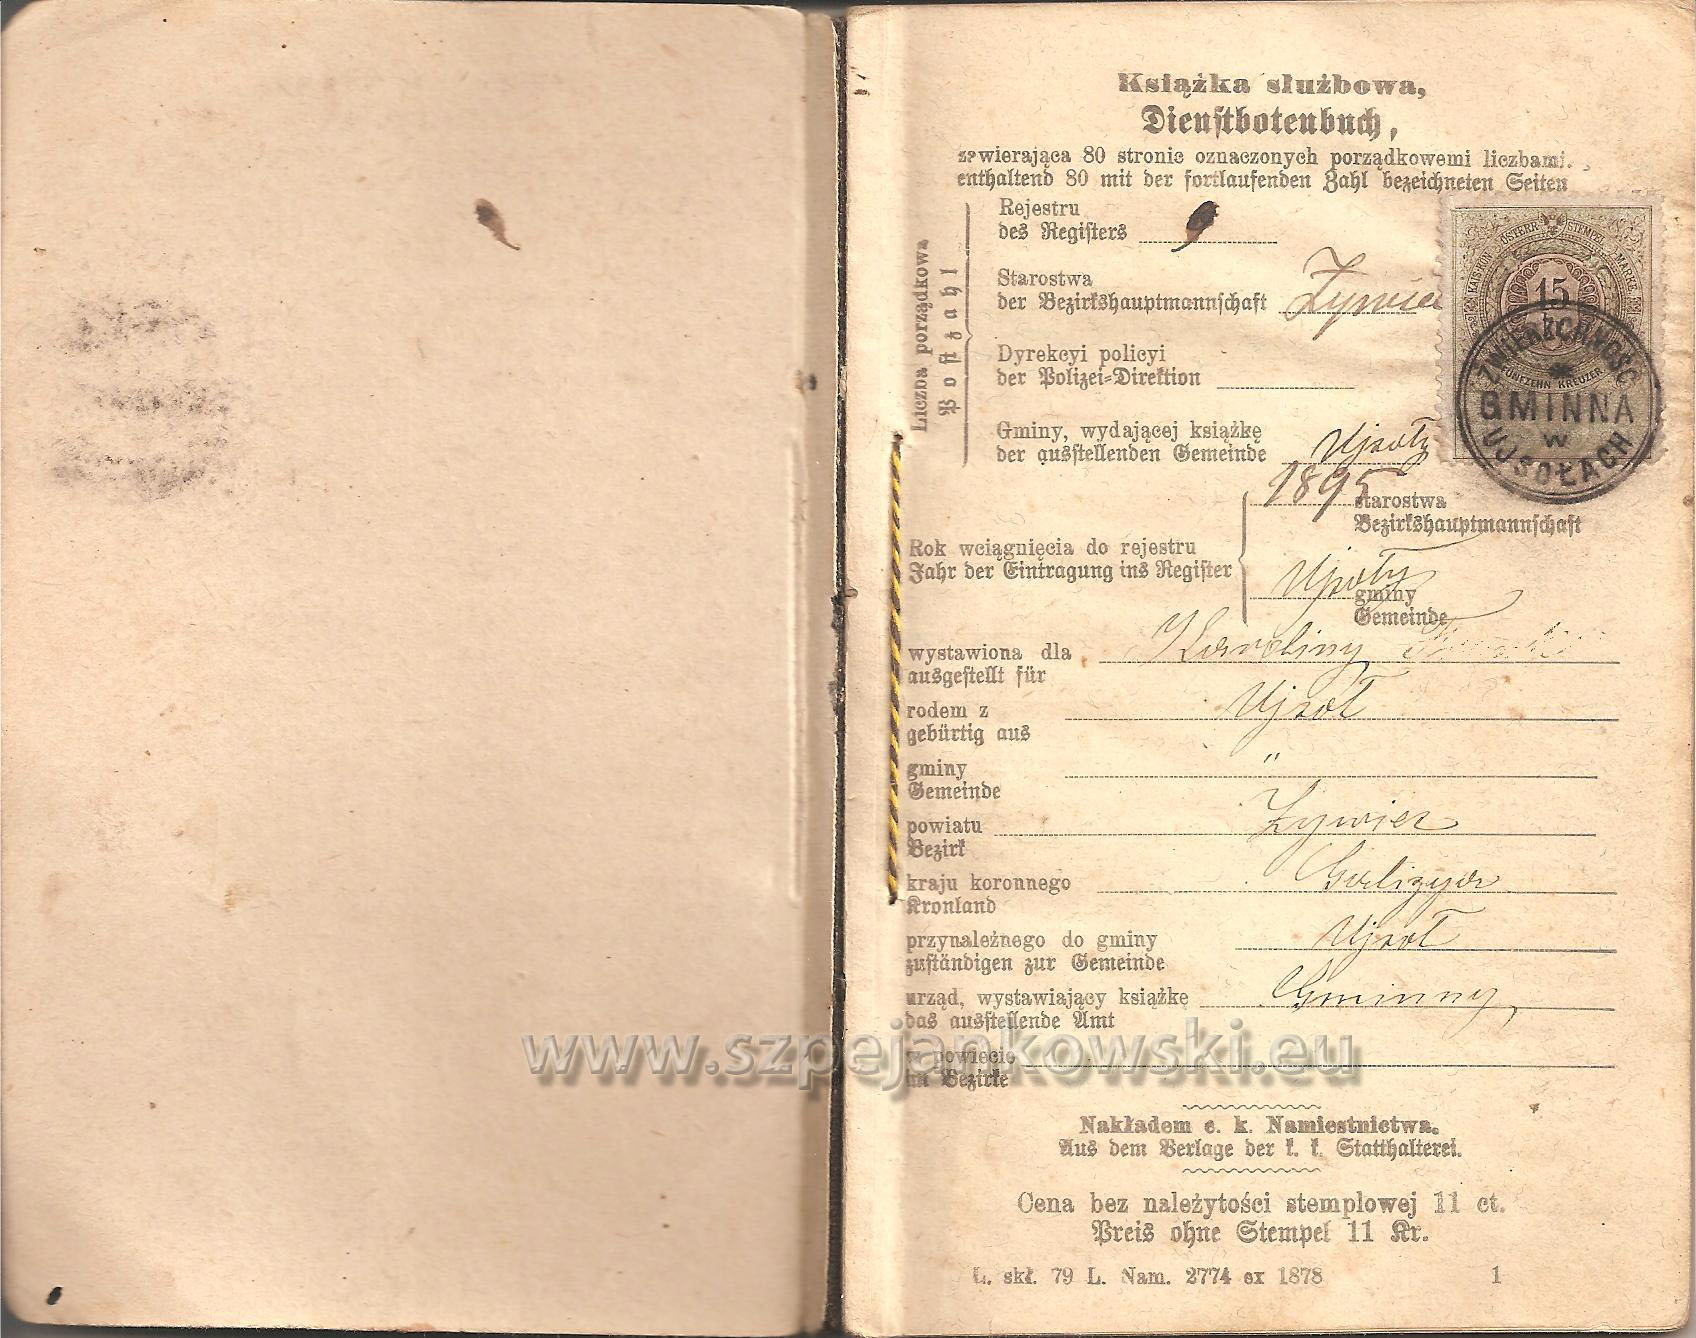 Książka służbowa,
Dienstbotenbuch,
zawierająca 80 stronic oznaczonych porządkowemi liczbami.
enthaltend 80 mit der fortlaufenden Zahl bezeichneten Seiten
Liczba porządkowa
Postzahl
Rejestru
des Registers
Starostwa
der Bezirkshauptmannschaft Żywiec
Dyrekcyi policyi
der Polizei-Direktion
Gminy, wydającej książkę
der ausstellenden Gemeinde Ujsoły
KAIS. KÖN. ÖSTERR. STEMPEL MARKE
15
FÜNFZEHN KREUZER
ZWIERZCHNOŚĆ
GMINNA
w
UJSOŁACH
1895 starostwa
Bezirkshauptmannschaft
Rok wciągnięcia do rejestru
Jahr der Eintragung ins Register
Ujsoły
gminy
Gemeinde
wystawiona dla Karoliny
ausgestellt für
rodem z Ujsoł
gebürtig aus
gminy "
Gemeinde
powiatu Żywiec
Bezirk
kraju koronnego Galizya
Kronland
przynależnego do gminy Ujsoł
zuständigen zur Gemeinde
urząd, wystawiający książkę Gminny,
das ausstellende Amt
w powiecie
im Bezirke
www.szpejankowski.eu
Nakładem c. k. Namiestnictwa.
Aus dem Verlage der k. k. Statthalterei.
Cena bez należytości stemplowej 11 ct.
Preis ohne Stempel 11 Kr.
L. skł. 79 L. Nam. 2774 ex 1878 1